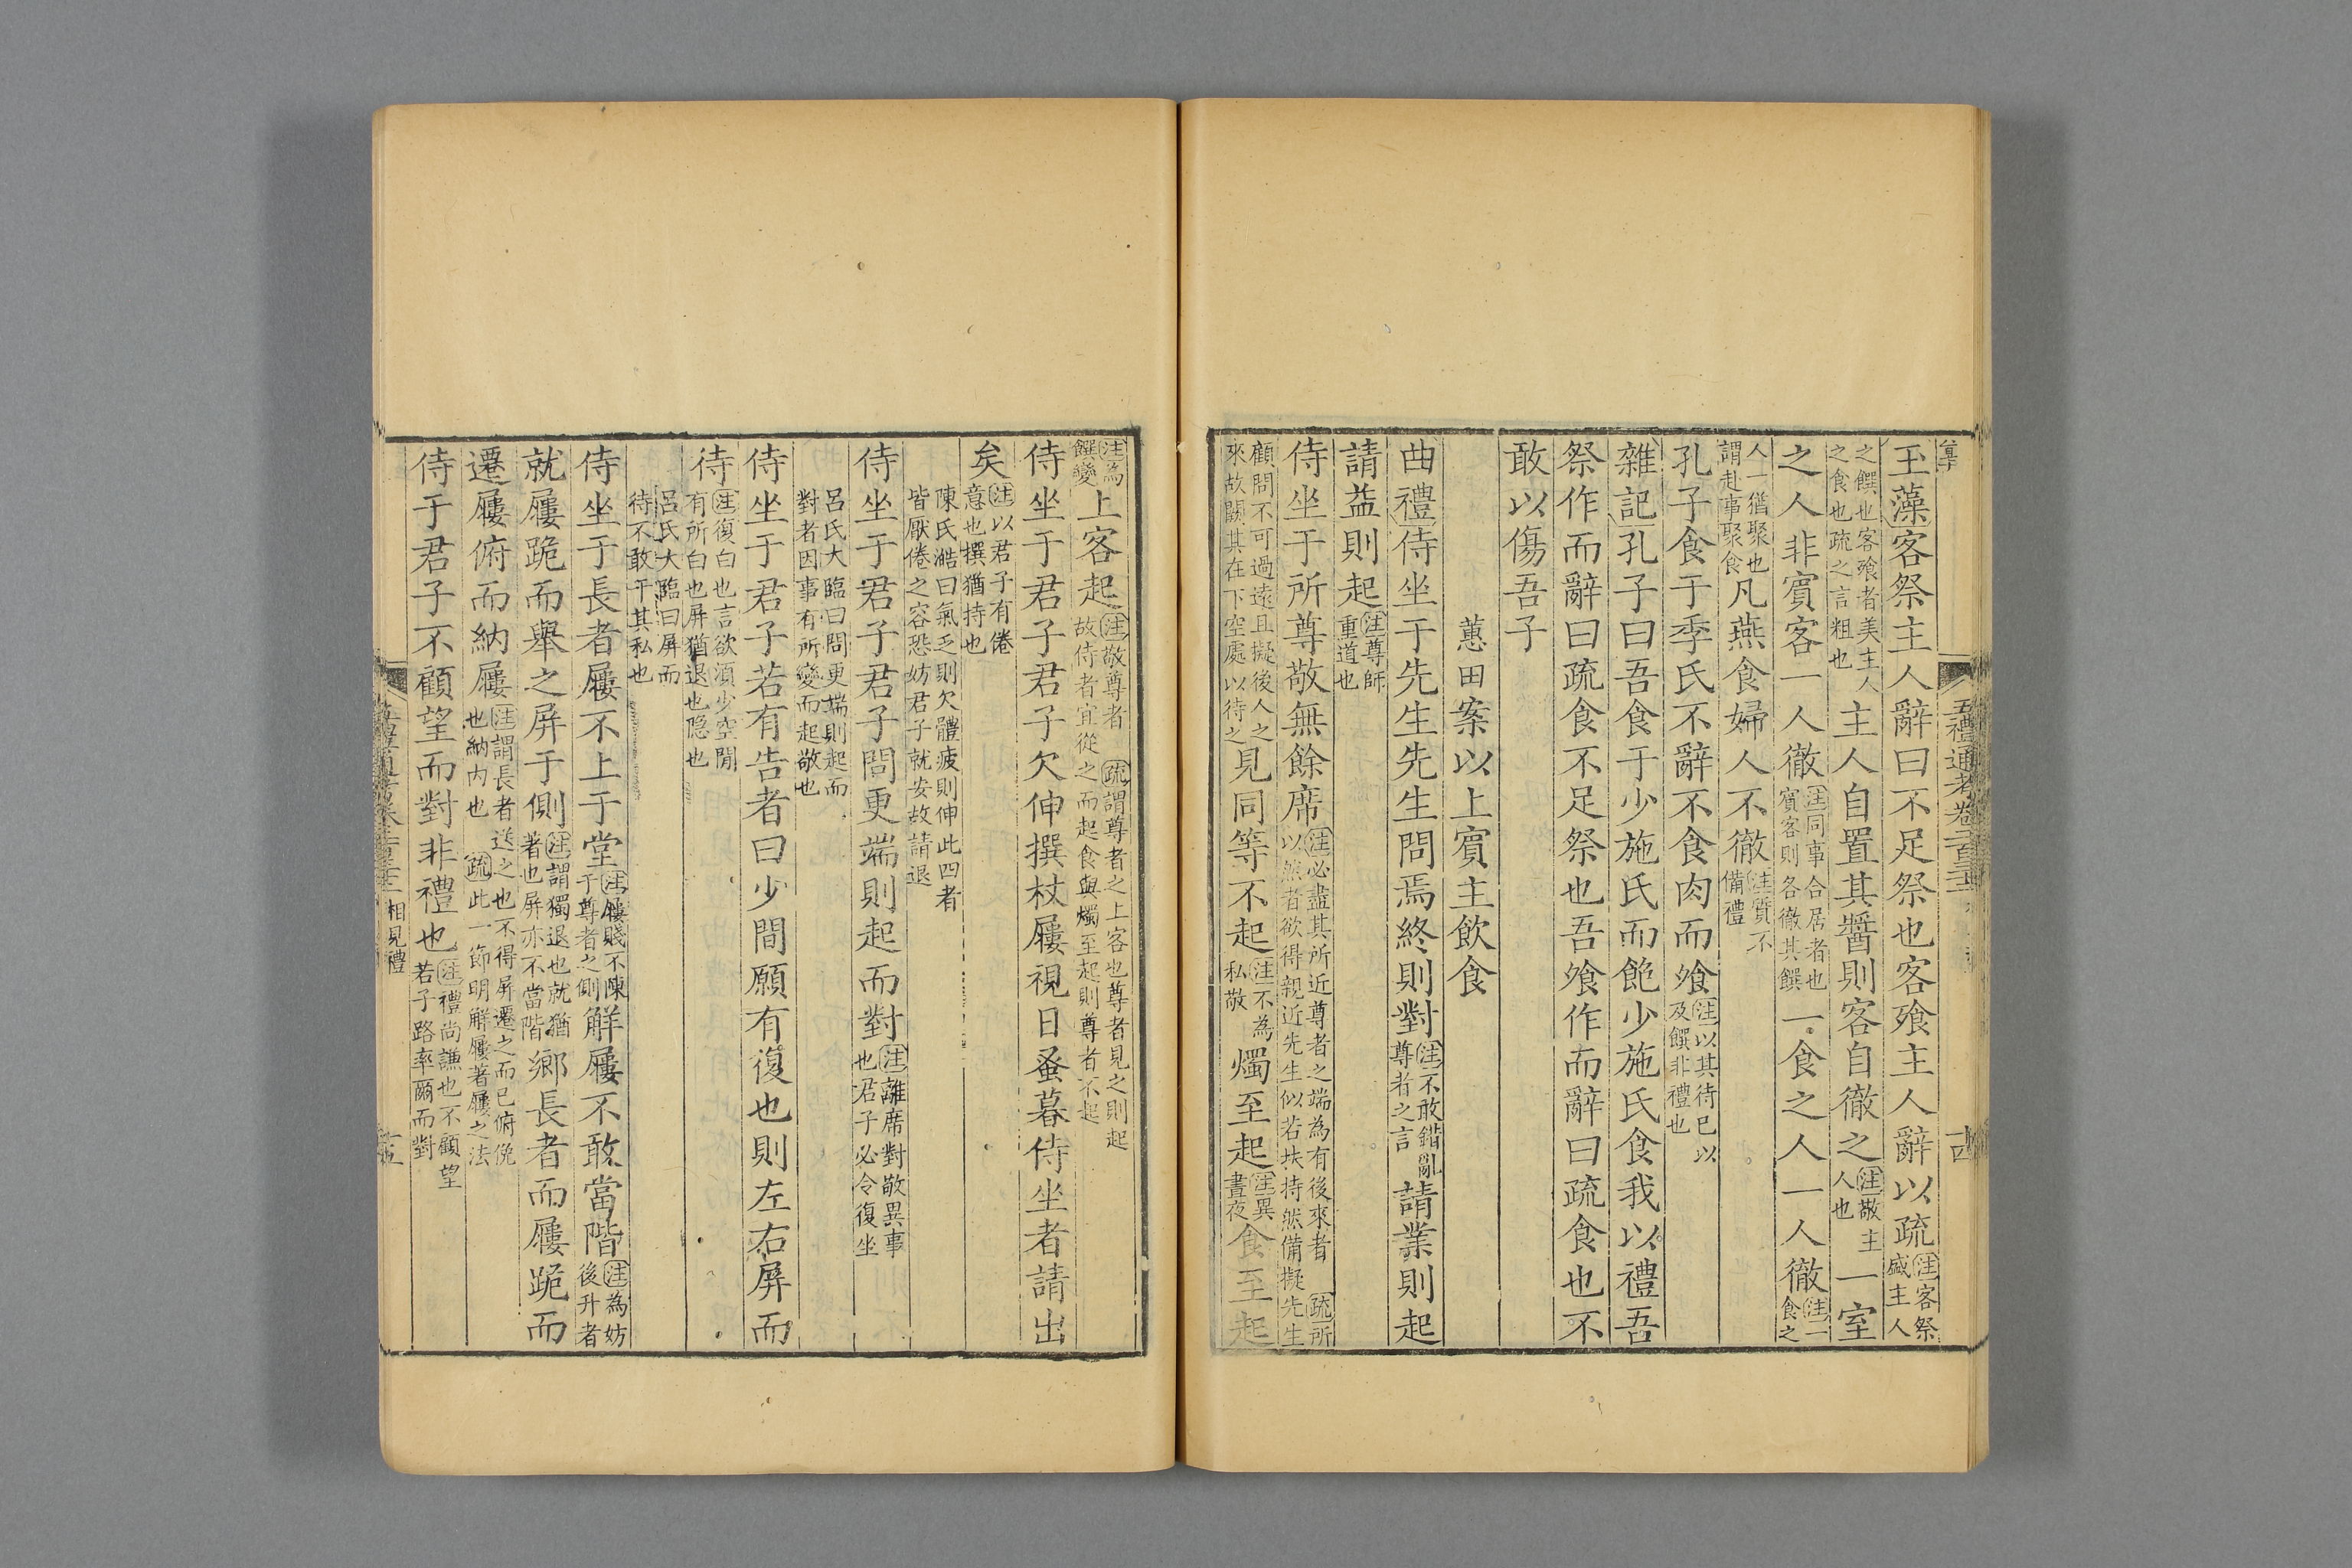 玉藻客祭主人辭曰不足祭也客飱主人辭以疏注客祭盛主人
之饌也客飱者美主人之食也疏之言粗也主人自置其醬則客自徹之注敬主人也一室
之人非賓客一人徹注同事合居者也賓客則各徹其饌一食之人一人徹注一食之
人一猶聚也謂赴事聚食凡燕食婦人不徹注質不備禮
孔子食于季氏不辭不食肉而飱注以其待已以及饌非禮也
雜記孔子曰吾食于少施氏而飽少施氏食我以禮吾
祭作而辭曰疏食不足祭也吾飱作而辭曰疏食也不
敢以傷吾子
蕙田案以上賓主飲食
曲禮侍坐于先生先生問焉終則對注不敢錯亂尊者之言請業則起
請益則起注尊師重道也
侍坐于所尊敬無餘席注必盡其所近尊者之端為有後來者 疏所以然者欲得親近先生似若扶持然備擬先生
顧問不可過遠且擬後人之來故闕其在下空處以待之見同等不起注不為私敬燭至起注異晝夜食至起
注為饌變上客起注敬尊者 疏謂尊者之上客也尊者見之則起故侍者宜從之而起食與燭至起則尊者不起
侍坐于君子君子欠伸撰杖屨視日蚤暮侍坐者請出
矣注以君子有倦意也撰猶持也
陳氏澔曰氣乏則欠體疲則伸此四者皆厭倦之容恐妨君子就安故請退
侍坐于君子君子問更端則起而對注離席對敬異事也君子必令復坐
呂氏大臨曰問更端則起而對者因事有所變而起敬也
侍坐于君子若有告者曰少間願有復也則左右屏而
待注復白也言欲須少空閒有所白也屏猶退也隱也
呂氏大臨曰屏而待不敢干其私也
侍坐于長者屨不上于堂注屨賤不陳于尊者之側解屨不敢當階注為妨後升者
就屨跪而舉之屏于側注謂獨退也就猶著也屏亦不當階鄉長者而屨跪而
遷屨俯而納屨注謂長者送之也不得屏遷之而已俯俛也納內也 疏此一節明解屨著屨之法
侍于君子不顧望而對非禮也注禮尚謙也不顧望若子路率爾而對
五禮通考卷二百三十二
十四
相見禮
十五